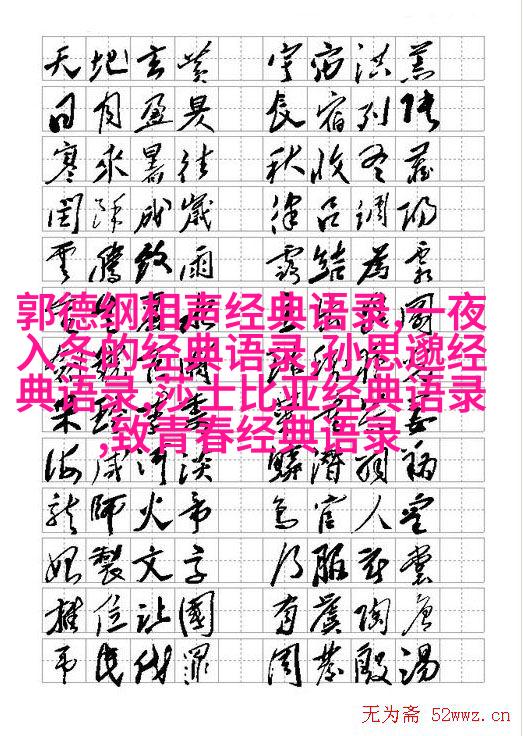 天地玄黃 宇宙洪荒
日月盈昃 辰宿列張
寒來暑往 秋收冬藏
閏餘成歲 律呂調陽
雲騰致雨 露結為霜
郭德纲相声经典语录,一夜
入冬的经典语录,孙思邈经
典语录,莎士比亚经典语录
,致青春经典语录
海咸河淡 鱗潛羽翔
龍師火帝 鳥官人皇
始製文字 乃服衣裳
推位讓國 有虞陶唐
吊民伐罪 周發殷湯
无为斋 52wwz.cn